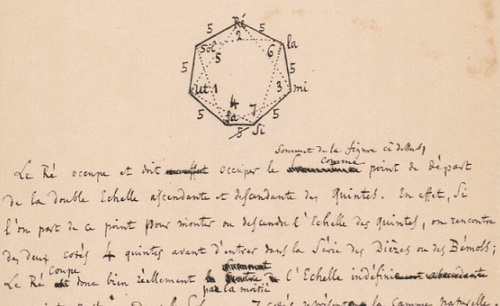 Ré
5 5
Sol 2 la
5 6
5 5
Ut 1 3 mi
4 7
5 fa Si 5
5
Sommet de la figure ci dessus,
Le Ré occupe et doit occuper le comme point de départ
de la double Echelle ascendante et descendante des Quintes. En effet, Si
l'on part de ce point pour monter ou descendre l'Echelle des quintes, on rencontre
des deux cotés 4 quintes avant d'entrer dans la Série des Dièzes ou des Bémols;
Le Ré coupe donc bien réellement par la moitié l'Echelle indéfinie